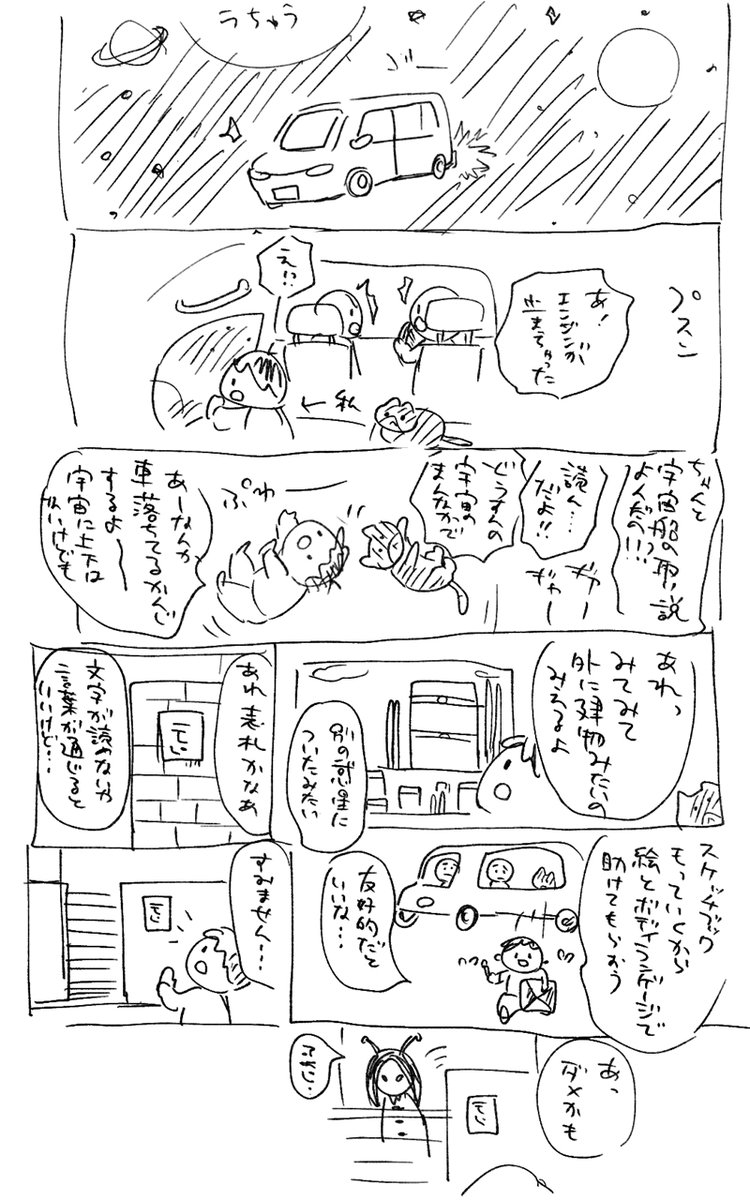 うちゅう
ゴー
プスン
あ!
エンジンが
止まっちゃった
えっ!?
私
ちゃんと
宇宙船の取り説
よんだの!!!
読ん…
だよ!!
ギャー
ギャー
どうすんの
宇宙の
まんなかで
ぷわ
あーなんか
車落ちてるかんじ
するよ〜
宇宙に上下は
ないけども
あれっ
みてみて
外に建物みたいの
みえるよ
別の惑星に
ついたみたい
あれ表札かなあ
文字が読めないや
言葉が通じると
いいけど…
スケッチブック
もっていくから
絵とボディランゲージで
助けてもらおう
友好的だと
いいな…
すみません…
あっ
ダメかも